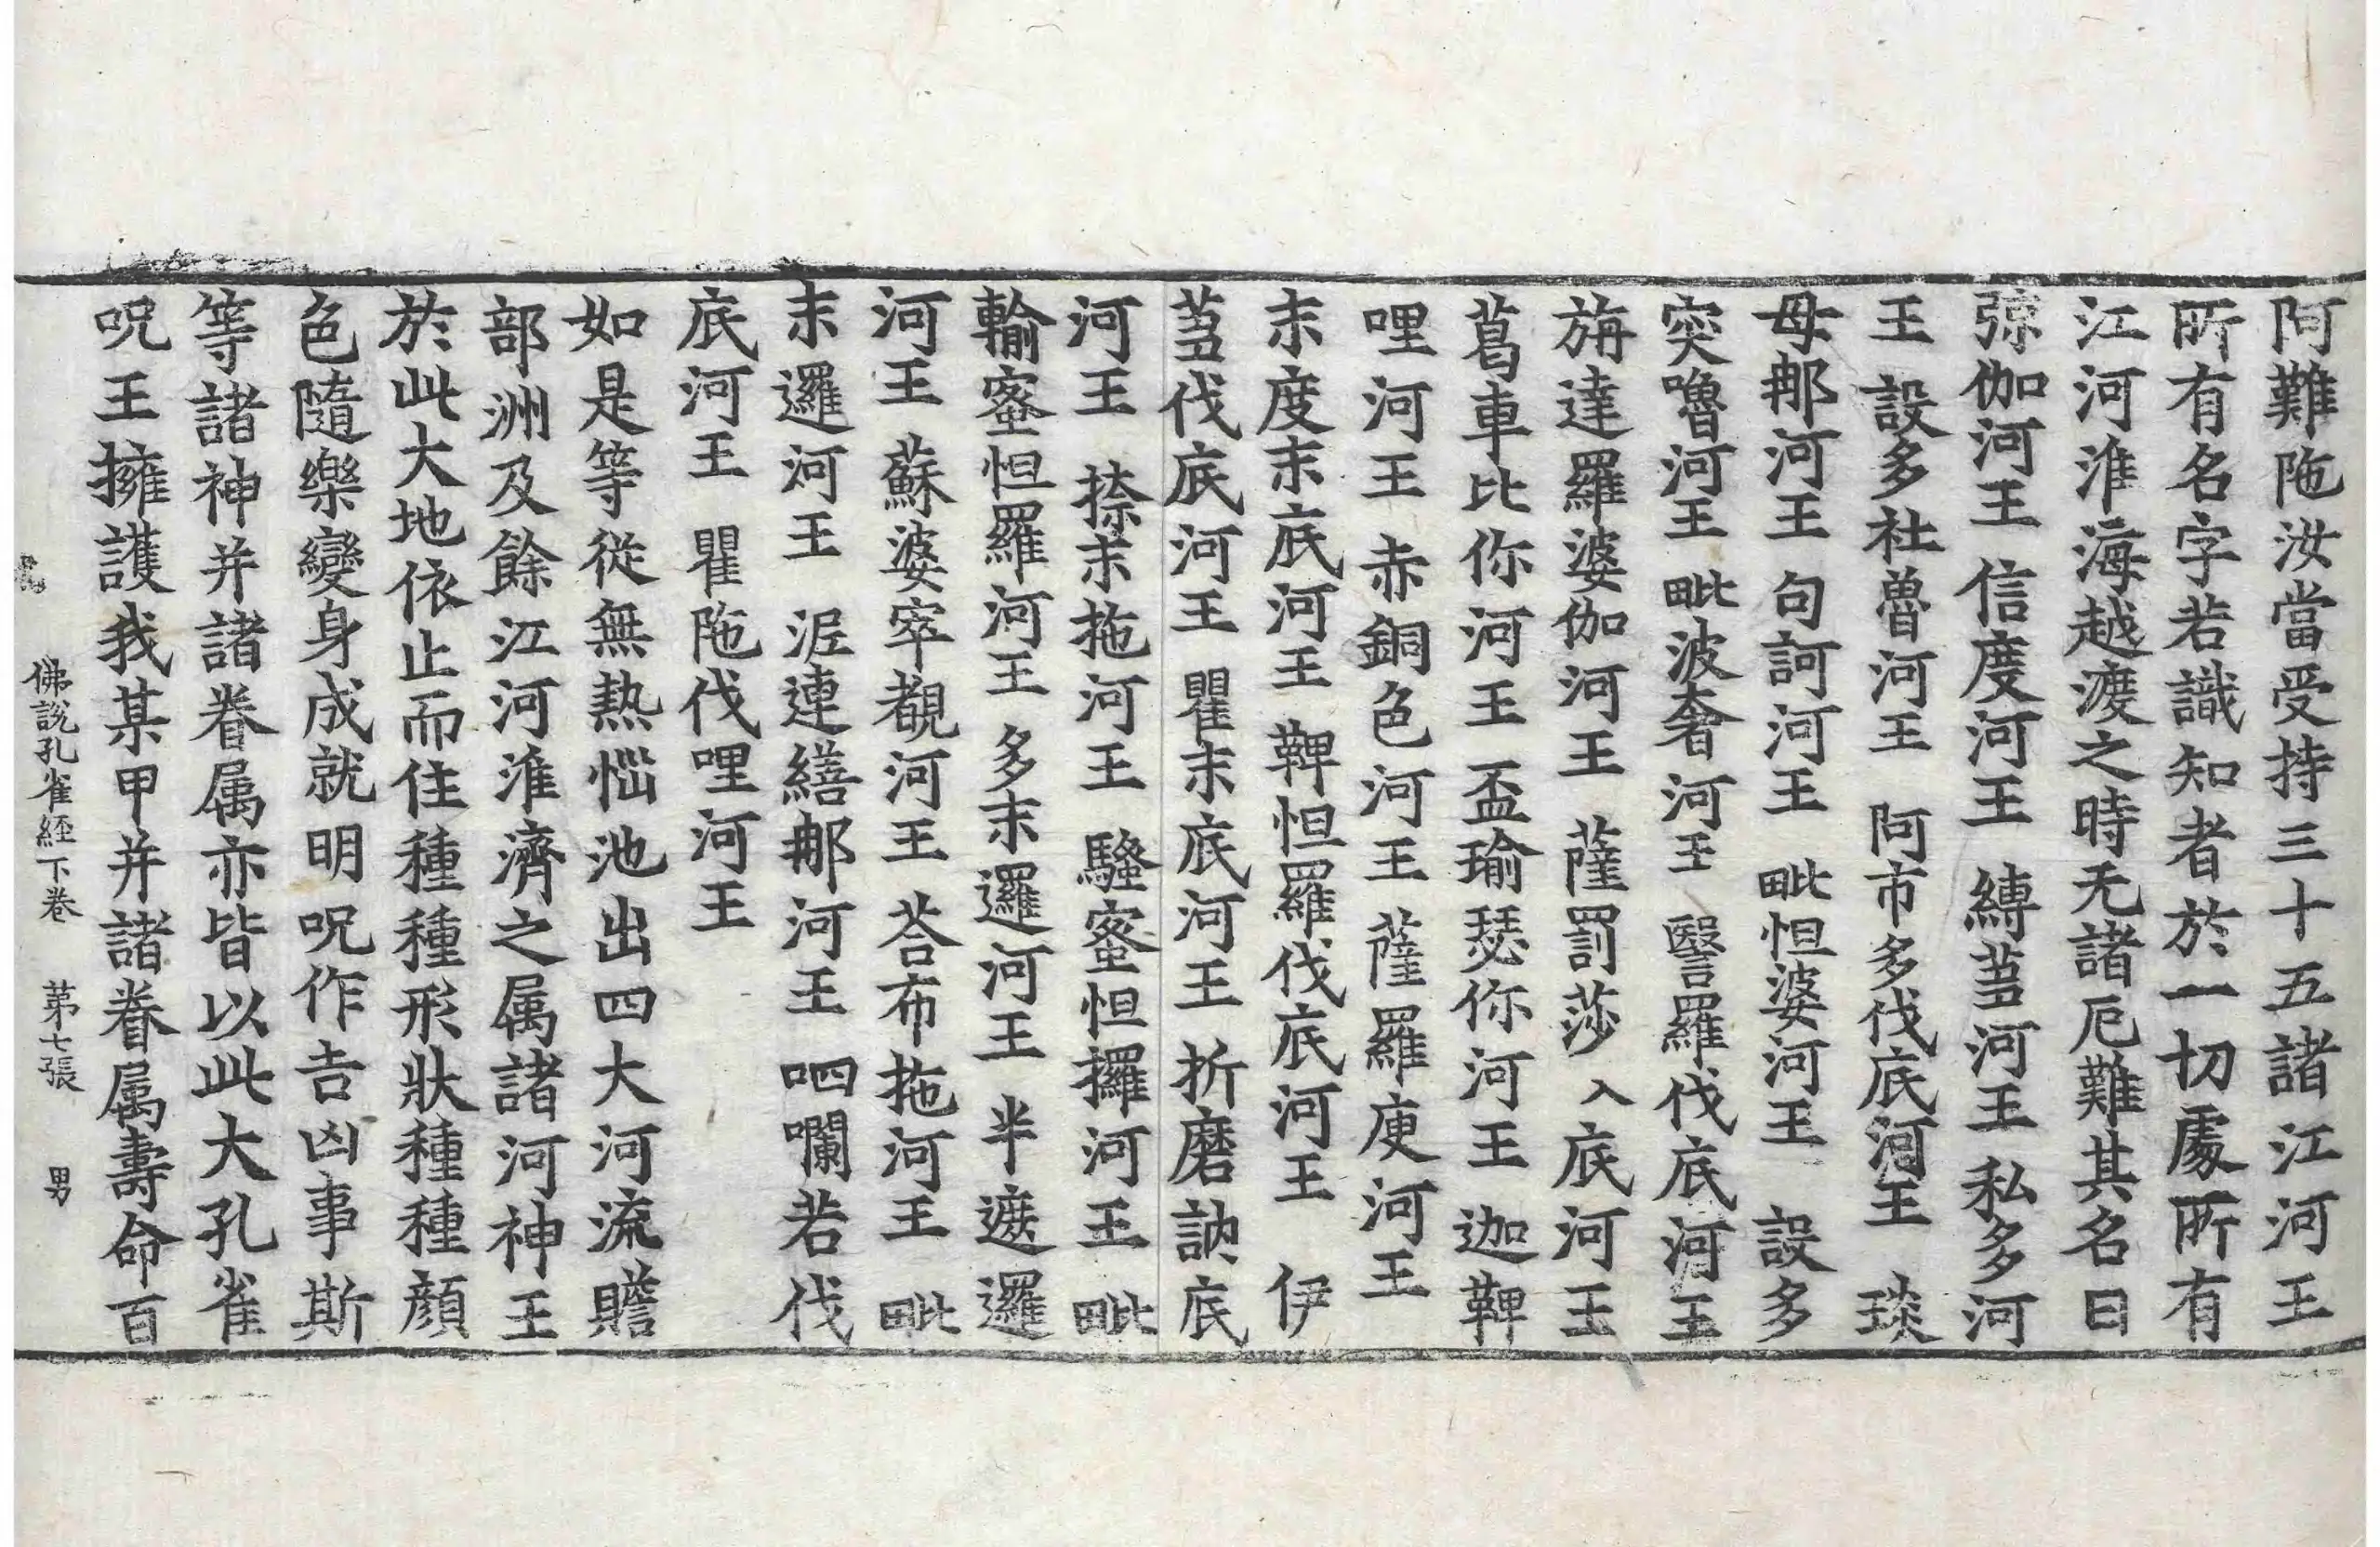 阿難陁汝當受持三十五諸江河王
所有名字若識知者於一切處所有
江河淮海越渡之時无諸厄難其名曰
弶伽河王 信度河王 縛蒭河王 私多河
王 設多社魯河王 阿市多伐底河王 琰
母那河王 句訶河王 毗怛婆河王 設多
突嚕河王 毗波奢河王 醫羅伐底河王
旃達羅婆伽河王 薩罰莎入底河王
葛車比你河王 盃瑜瑟你河王 迦鞞
哩河王 赤銅色河王 薩羅庾河王
末度末底河王 鞞怛羅伐底河王 伊
蒭伐底河王 瞿末底河王 折磨訥底
河王 捺末拖河王 騷蜜怛攞河王 毗
輸蜜怛羅河王 多末邏河王 半遮邏
河王 蘇婆窣覩河王 荅布拖河王 毗
末邏河王 泥連繕那河王 呬嚂若伐
底河王 瞿陁伐哩河王
如是等從無熱惱池出四大河流贍
部洲及餘江河淮濟之属諸河神王
於此大地依止而住種種形狀種種顔
色隨樂變身成就明呪作吉凶事斯
等諸神并諸眷属亦皆以此大孔雀
呪王擁護我某甲并諸眷属壽命百
佛説孔雀経下卷 苐七張 男